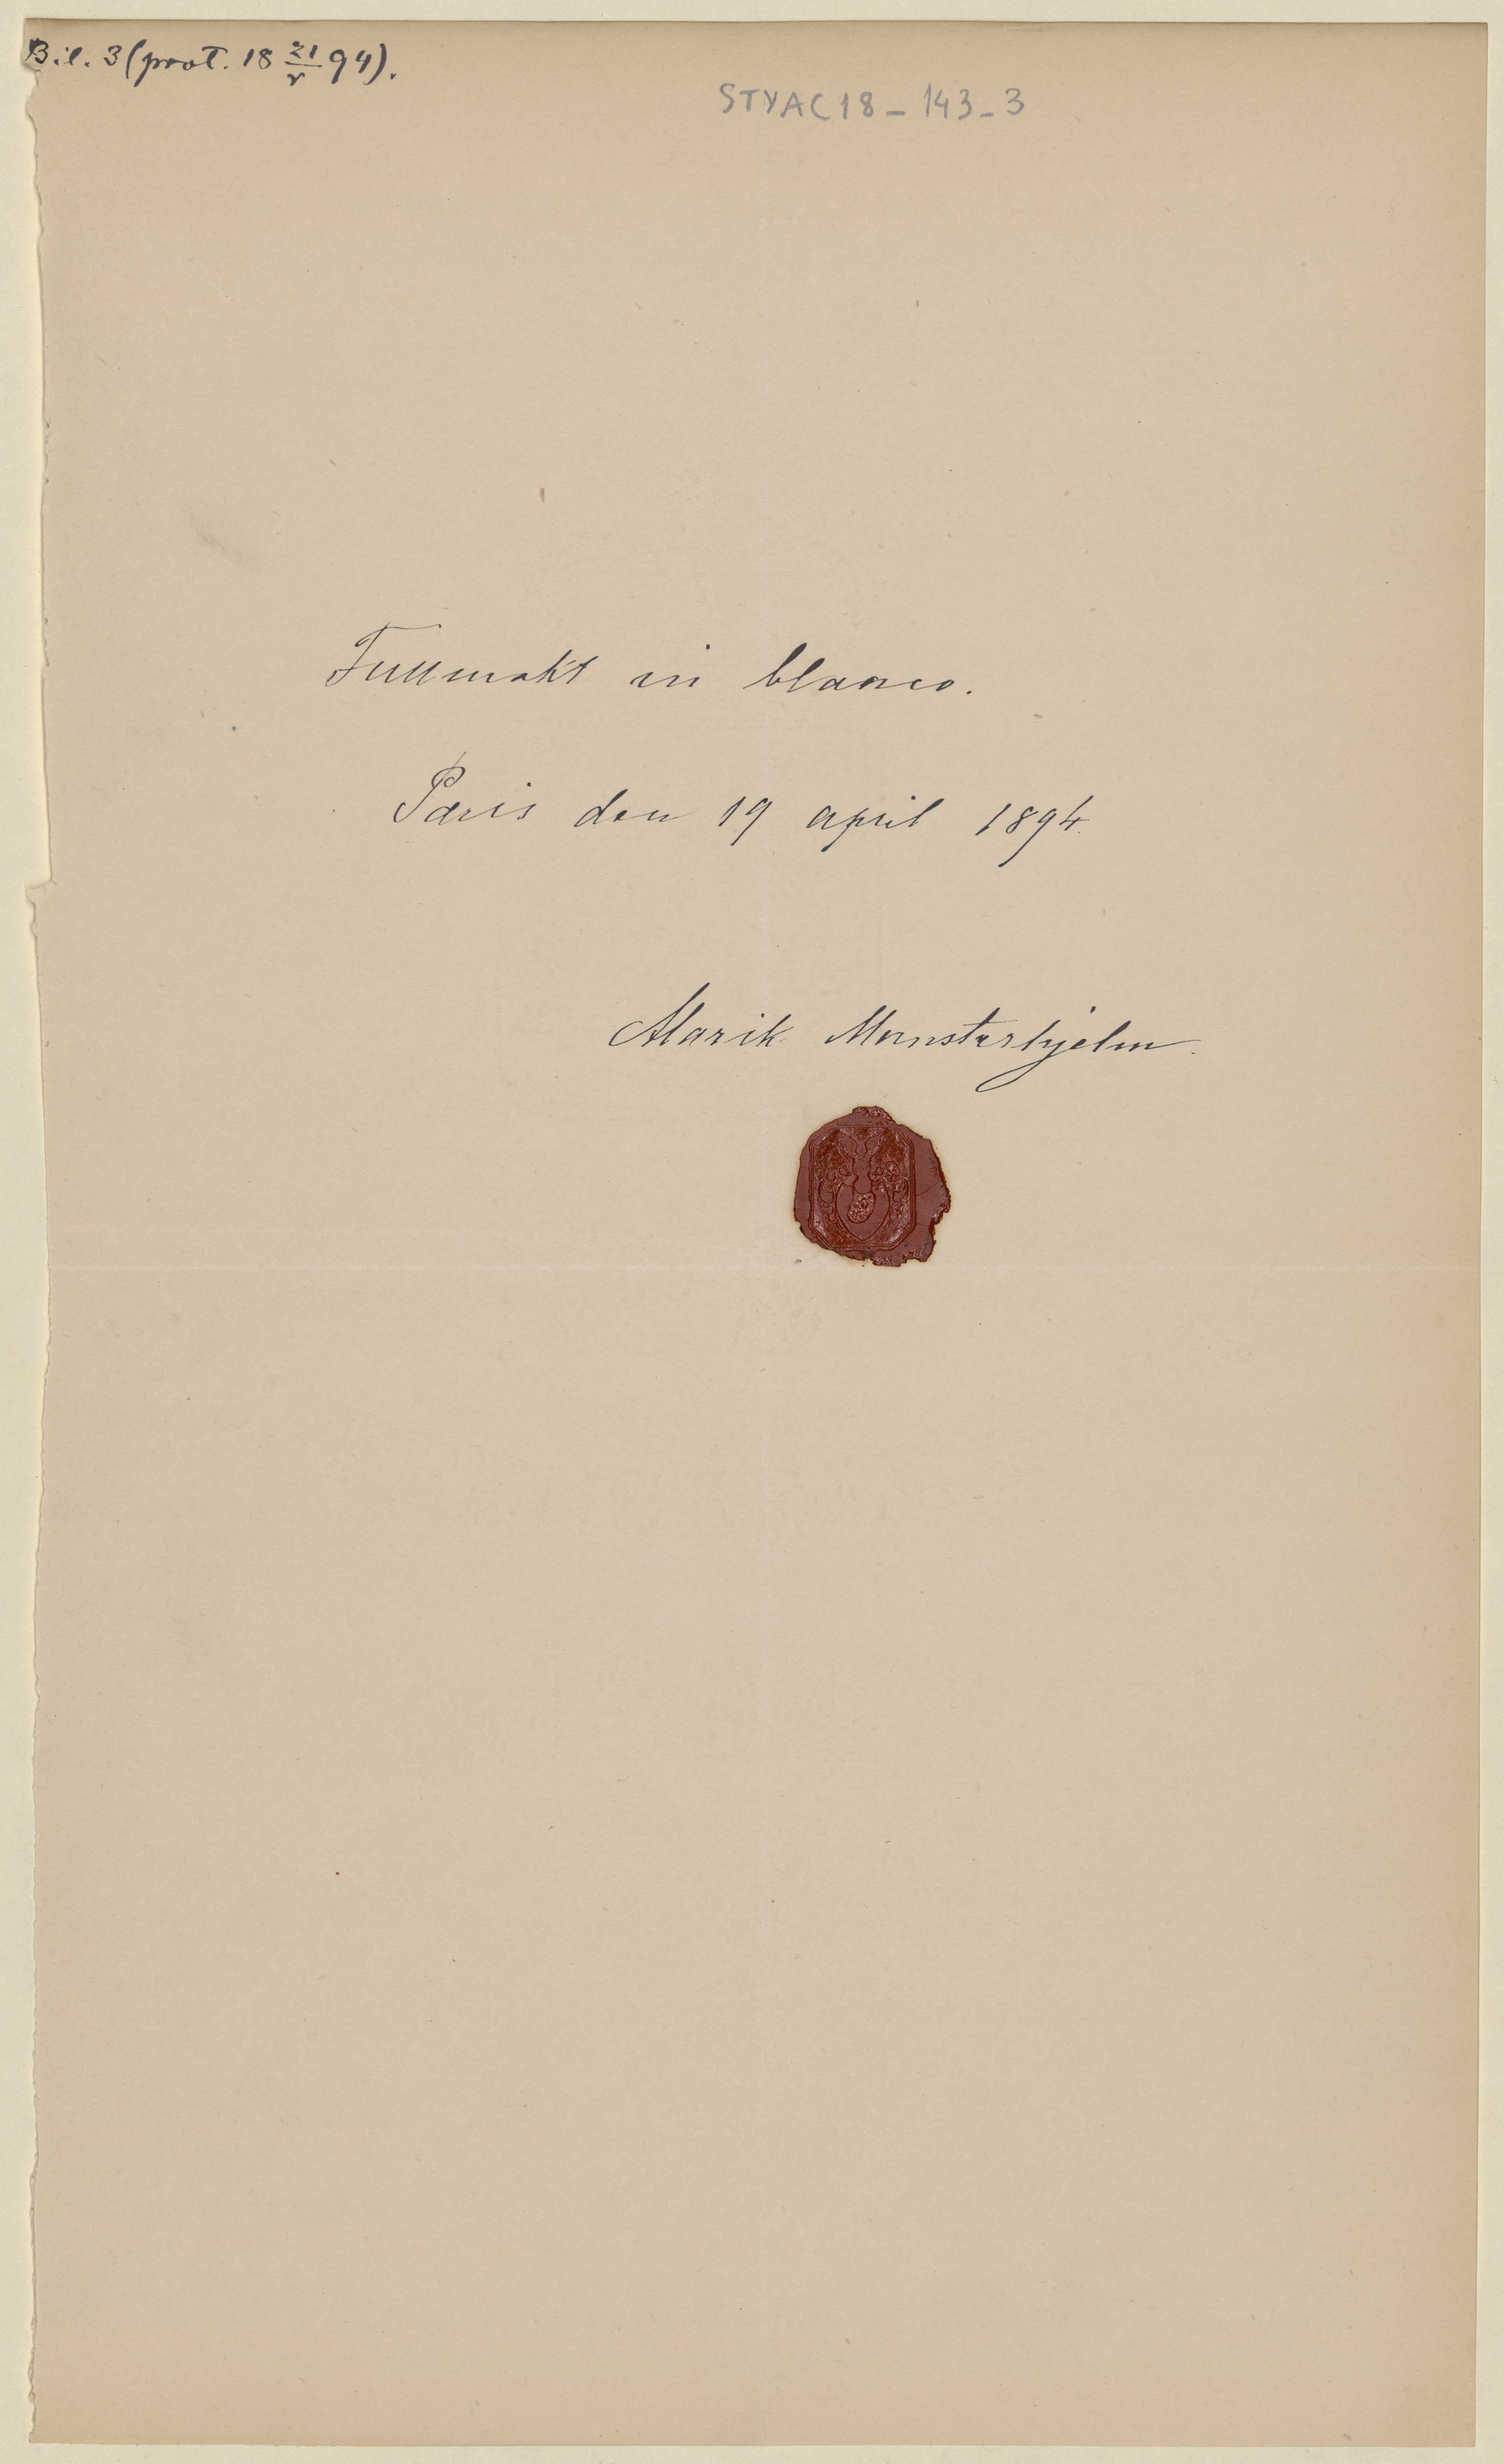 Bil. 3 (prot. 18 21/V 94).
STYAC18-143-3
Fullmakt in blanco.
Paris den 19 april 1894.
Alarik Munsterhjelm.